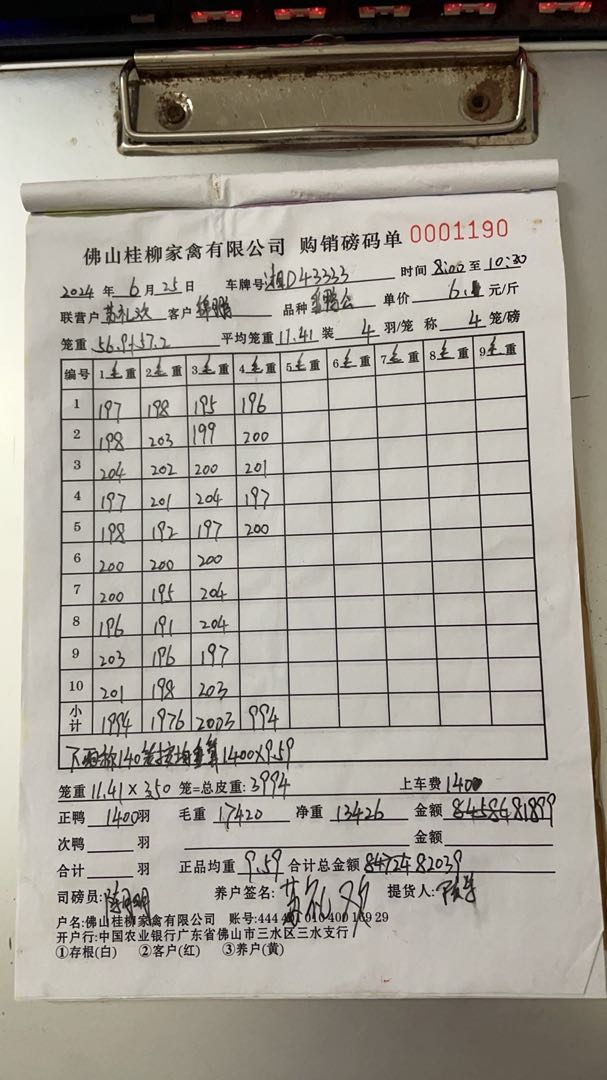 佛山桂柳家禽有限公司 购销磅码单 0001190
2024 年 6 月 25 日 车牌号 湘D43333 时间 8:00 至 10:30
联营户 苏礼欢 客户 品种 单价 6.1 元/斤
笼重 56.9+57.2 平均笼重 11.41 装 4 羽/笼 称 4 笼/磅
编号 1毛重 2毛重 3毛重 4毛重 5毛重 6毛重 7毛重 8毛重 9毛重
1 197 198 195 196
2 198 203 199 200
3 204 202 200 201
4 197 201 204 197
5 198 192 197 200
6 200 200 200
7 200 195 204
8 196 191 204
9 203 196 197
10 201 198 203
小计 1994 1976 2003 994
下雨称140笼按均重算1400×9.59
笼重 11.41 × 350 笼=总皮重: 3994 上车费 1400
正鸭 1400 羽 毛重 17420 净重 13426 金额 84586 81899
次鸭 羽 金额
合计 羽 正品均重 9.59 合计总金额 84724 82039
司磅员: 养户签名: 苏礼欢 提货人:
户名:佛山桂柳家禽有限公司 账号:444
开户行:中国农业银行广东省佛山市三水区三水支行
①存根(白) ②客户(红) ③养户(黄)